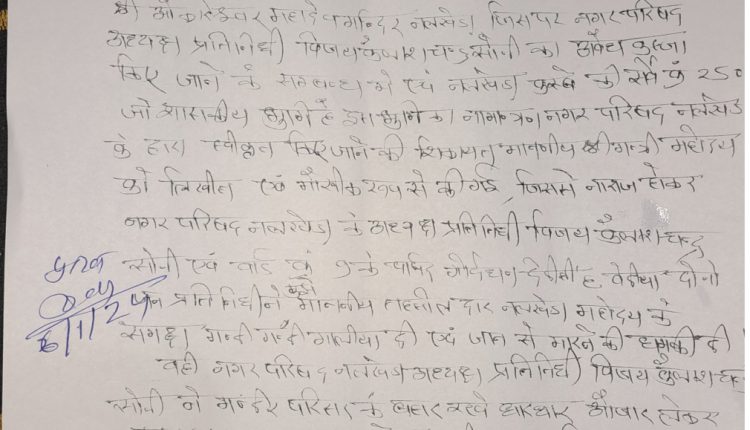 श्री ओंकारेश्वर महादेव मन्दिर नलखेडा जिसपर नगर परिषद
अध्यक्ष प्रतिनिधी विजय कैलाश चन्द्र सोनी का अवैध कब्जा
किए जाने के सम्बन्ध मे एवं नलखेडा कस्बे की सर्वे क्रं 250
जो शासकीय भूमि है इस भूमि का नामान्त्रण नगर परिषद नलखेडा
के द्वारा स्वीकृत किए जाने की शिकायत माननीय श्री मन्त्री महोदय
को लिखीत एवं मौखीक रूप से की गई जिससे नाराज होकर
नगर परिषद नलखेडा के अध्यक्ष प्रतिनिधी विजय कैलाश चन्द्र
सोनी एवं वार्ड क्रं 9 के पार्षद गोर्वधन दोनो
6/1/24 प्रतिनिधी ने मुझे माननीय तहसीलदार नलखेडा महोदय के
समक्ष गन्दी गन्दी गालीया दी एवं जान से मारने की धमकी दी
वही नगर परिषद नलखेडा अध्यक्ष प्रतिनिधी विजय कैलाश चन्द्र
सोनी ने मन्दिर परिसर के बहार रखे धारधार औजार लेकर